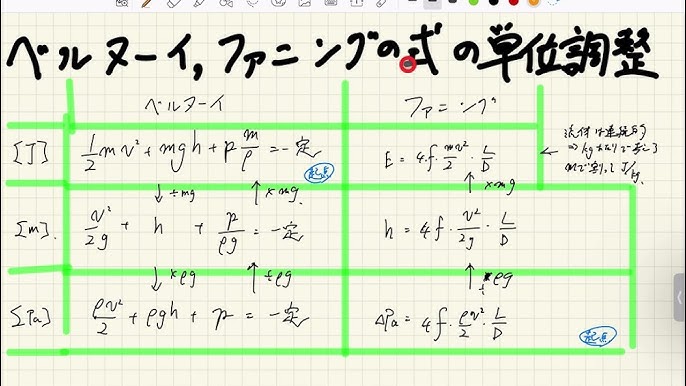 ベルヌーイ,ファニングの式の単位調整
ベルヌーイ ファニング
[J] 1/2 mv² + mgh + p m/ρ = 一定 E = 4f・mv²/2・L/D
起点
↓÷mg ↑×mg ↑×mg
[m] v²/2g + h + p/ρg = 一定 h = 4f・v²/2g・L/D
↓×ρg ↑÷ρg ↑÷ρg
[Pa] ρv²/2 + ρgh + p = 一定 ΔPa = 4f・ρv²/2・L/D
起点
← 流体は連続
⇒ kg
mで割って J/kg